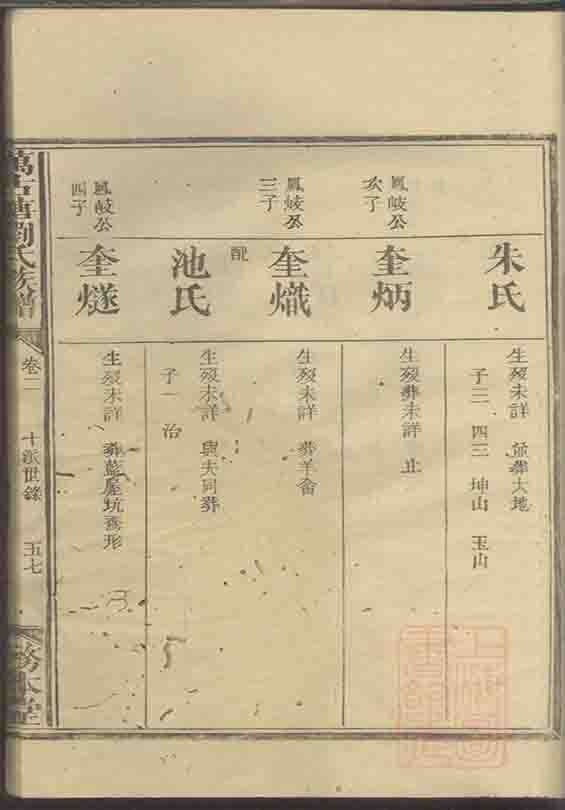 朱氏
生歿未詳 並葬大地
子三 四三 坤山 玉山
鳳岐公
次子
奎炳
生歿葬未詳 止
鳳岐公
三子
奎熾
生歿未詳 葬羊畲
配
池氏
生歿未詳 與夫同葬
子一 治
鳳岐公
四子
奎燧
生歿未詳 葬藍屋坑燕形
劉氏族譜
卷二
十派世錄
五七
務本堂